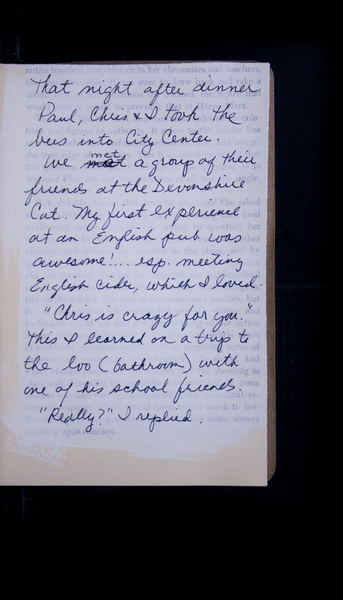 That night after dinner
Paul, Chris & I took the
bus into City Center.
We met a group of their
friends at the Devonshire
Cat. My first experience
at an English pub was
awesome!... esp. meeting
English cider, which I loved.
"Chris is crazy for you."
This I learned on a trip to
the loo (bathroom) with
one of his school friends.
"Really?" I replied.